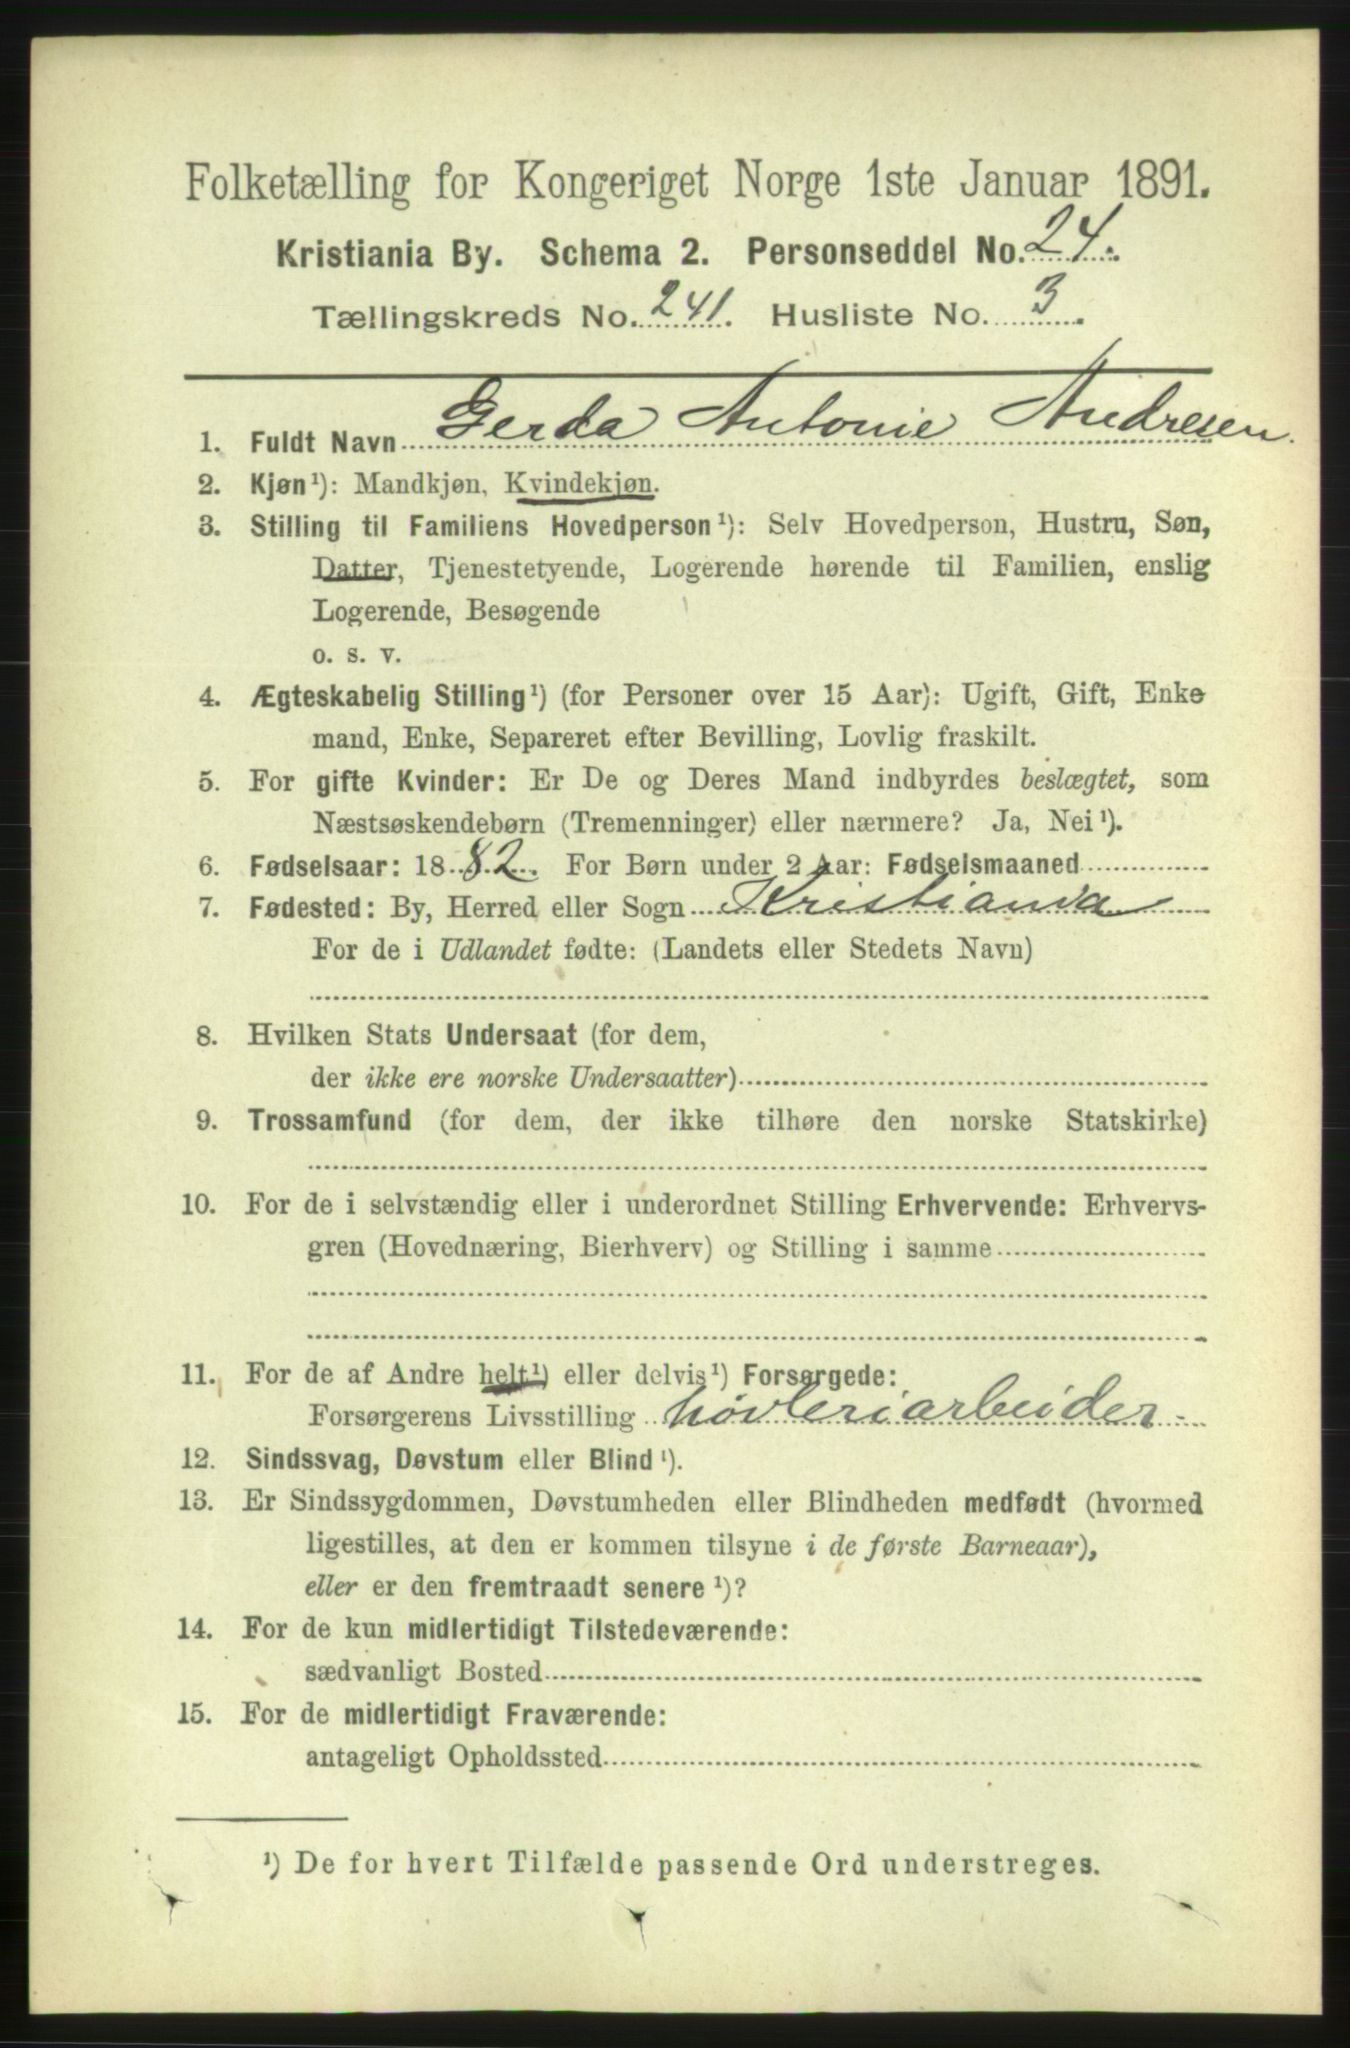 Folketælling for Kongeriget Norge 1ste Januar 1891.
Kristiania By. Schema 2. Personseddel No. 24.
Tællingskreds No. 241. Husliste No. 3.
1. Fuldt Navn Gerda Antonie Andresen.
2. Kjøn¹): Mandkjøn, Kvindekjøn.
3. Stilling til Familiens Hovedperson¹): Selv Hovedperson, Hustru, Søn,
Datter, Tjenestetyende, Logerende hørende til Familien, enslig
Logerende, Besøgende
o. s. v.
4. Ægteskabelig Stilling¹) (for Personer over 15 Aar): Ugift, Gift, Enke
mand, Enke, Separeret efter Bevilling, Lovlig fraskilt.
5. For gifte Kvinder: Er De og Deres Mand indbyrdes beslægtet, som
Næstsøskendebørn (Tremenninger) eller nærmere? Ja, Nei¹).
6. Fødselsaar: 1882. For Børn under 2 Aar: Fødselsmaaned
7. Fødested: By, Herred eller Sogn Kristiania
For de i Udlandet fødte: (Landets eller Stedets Navn)
8. Hvilken Stats Undersaat (for dem,
der ikke ere norske Undersaatter)
9. Trossamfund (for dem, der ikke tilhøre den norske Statskirke)
10. For de i selvstændig eller i underordnet Stilling Erhvervende: Erhvervs-
gren (Hovednæring, Bierhverv) og Stilling i samme
11. For de af Andre helt¹) eller delvis¹) Forsørgede:
Forsørgerens Livsstilling høvleriarbeider
12. Sindssvag, Døvstum eller Blind¹).
13. Er Sindssygdommen, Døvstumheden eller Blindheden medfødt (hvormed
ligestilles, at den er kommen tilsyne i de første Barneaar),
eller er den fremtraadt senere¹)?
14. For de kun midlertidigt Tilstedeværende:
sædvanligt Bosted
15. For de midlertidigt Fraværende:
antageligt Opholdssted
¹) De for hvert Tilfælde passende Ord understreges.